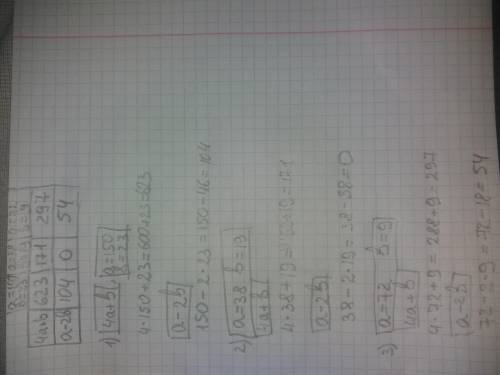 4a+b 623 171 297
a-2b 104 0 54
1) 4a+b, a=150
b=23
4·150+23=600+23=623
a-2b
150-2·23=150-46=104
2) a=38 b=19
4a+b
4·38+19=152+19=171
a-2b
38-2·19=38-38=0
3) a=72 b=9
4a+b
4·72+9=288+9=297
a-2b
72-2·9=72-18=54